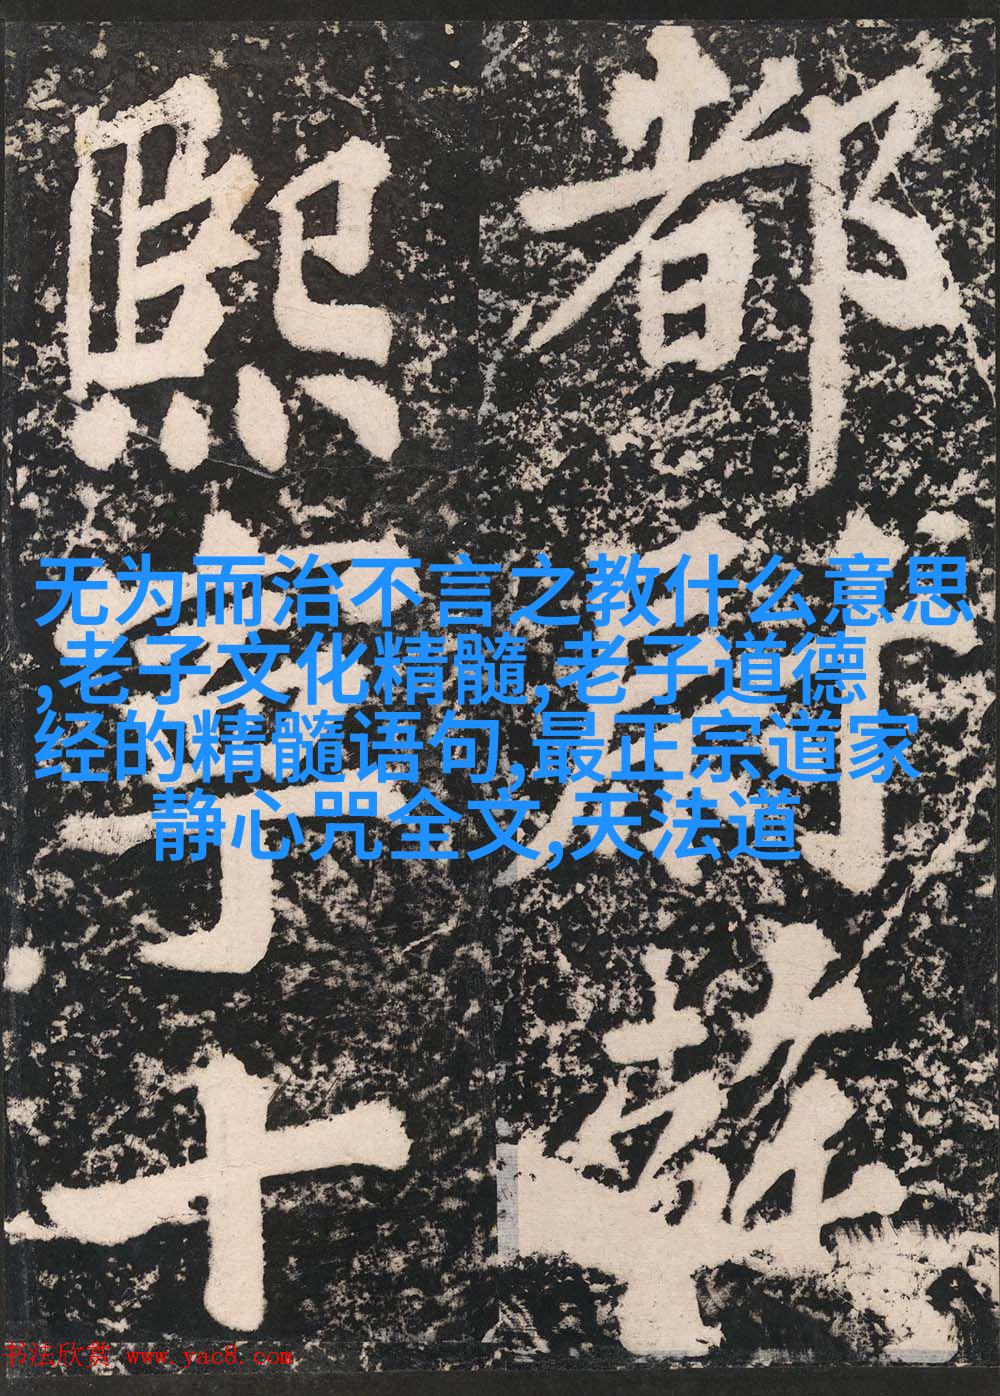 都
熙寧十
无为而治不言之教什么意思
,老子文化精髓,老子道德
经的精髓语句,最正宗道家
静心咒全文,天法道
书法欣赏 www.yac8.com